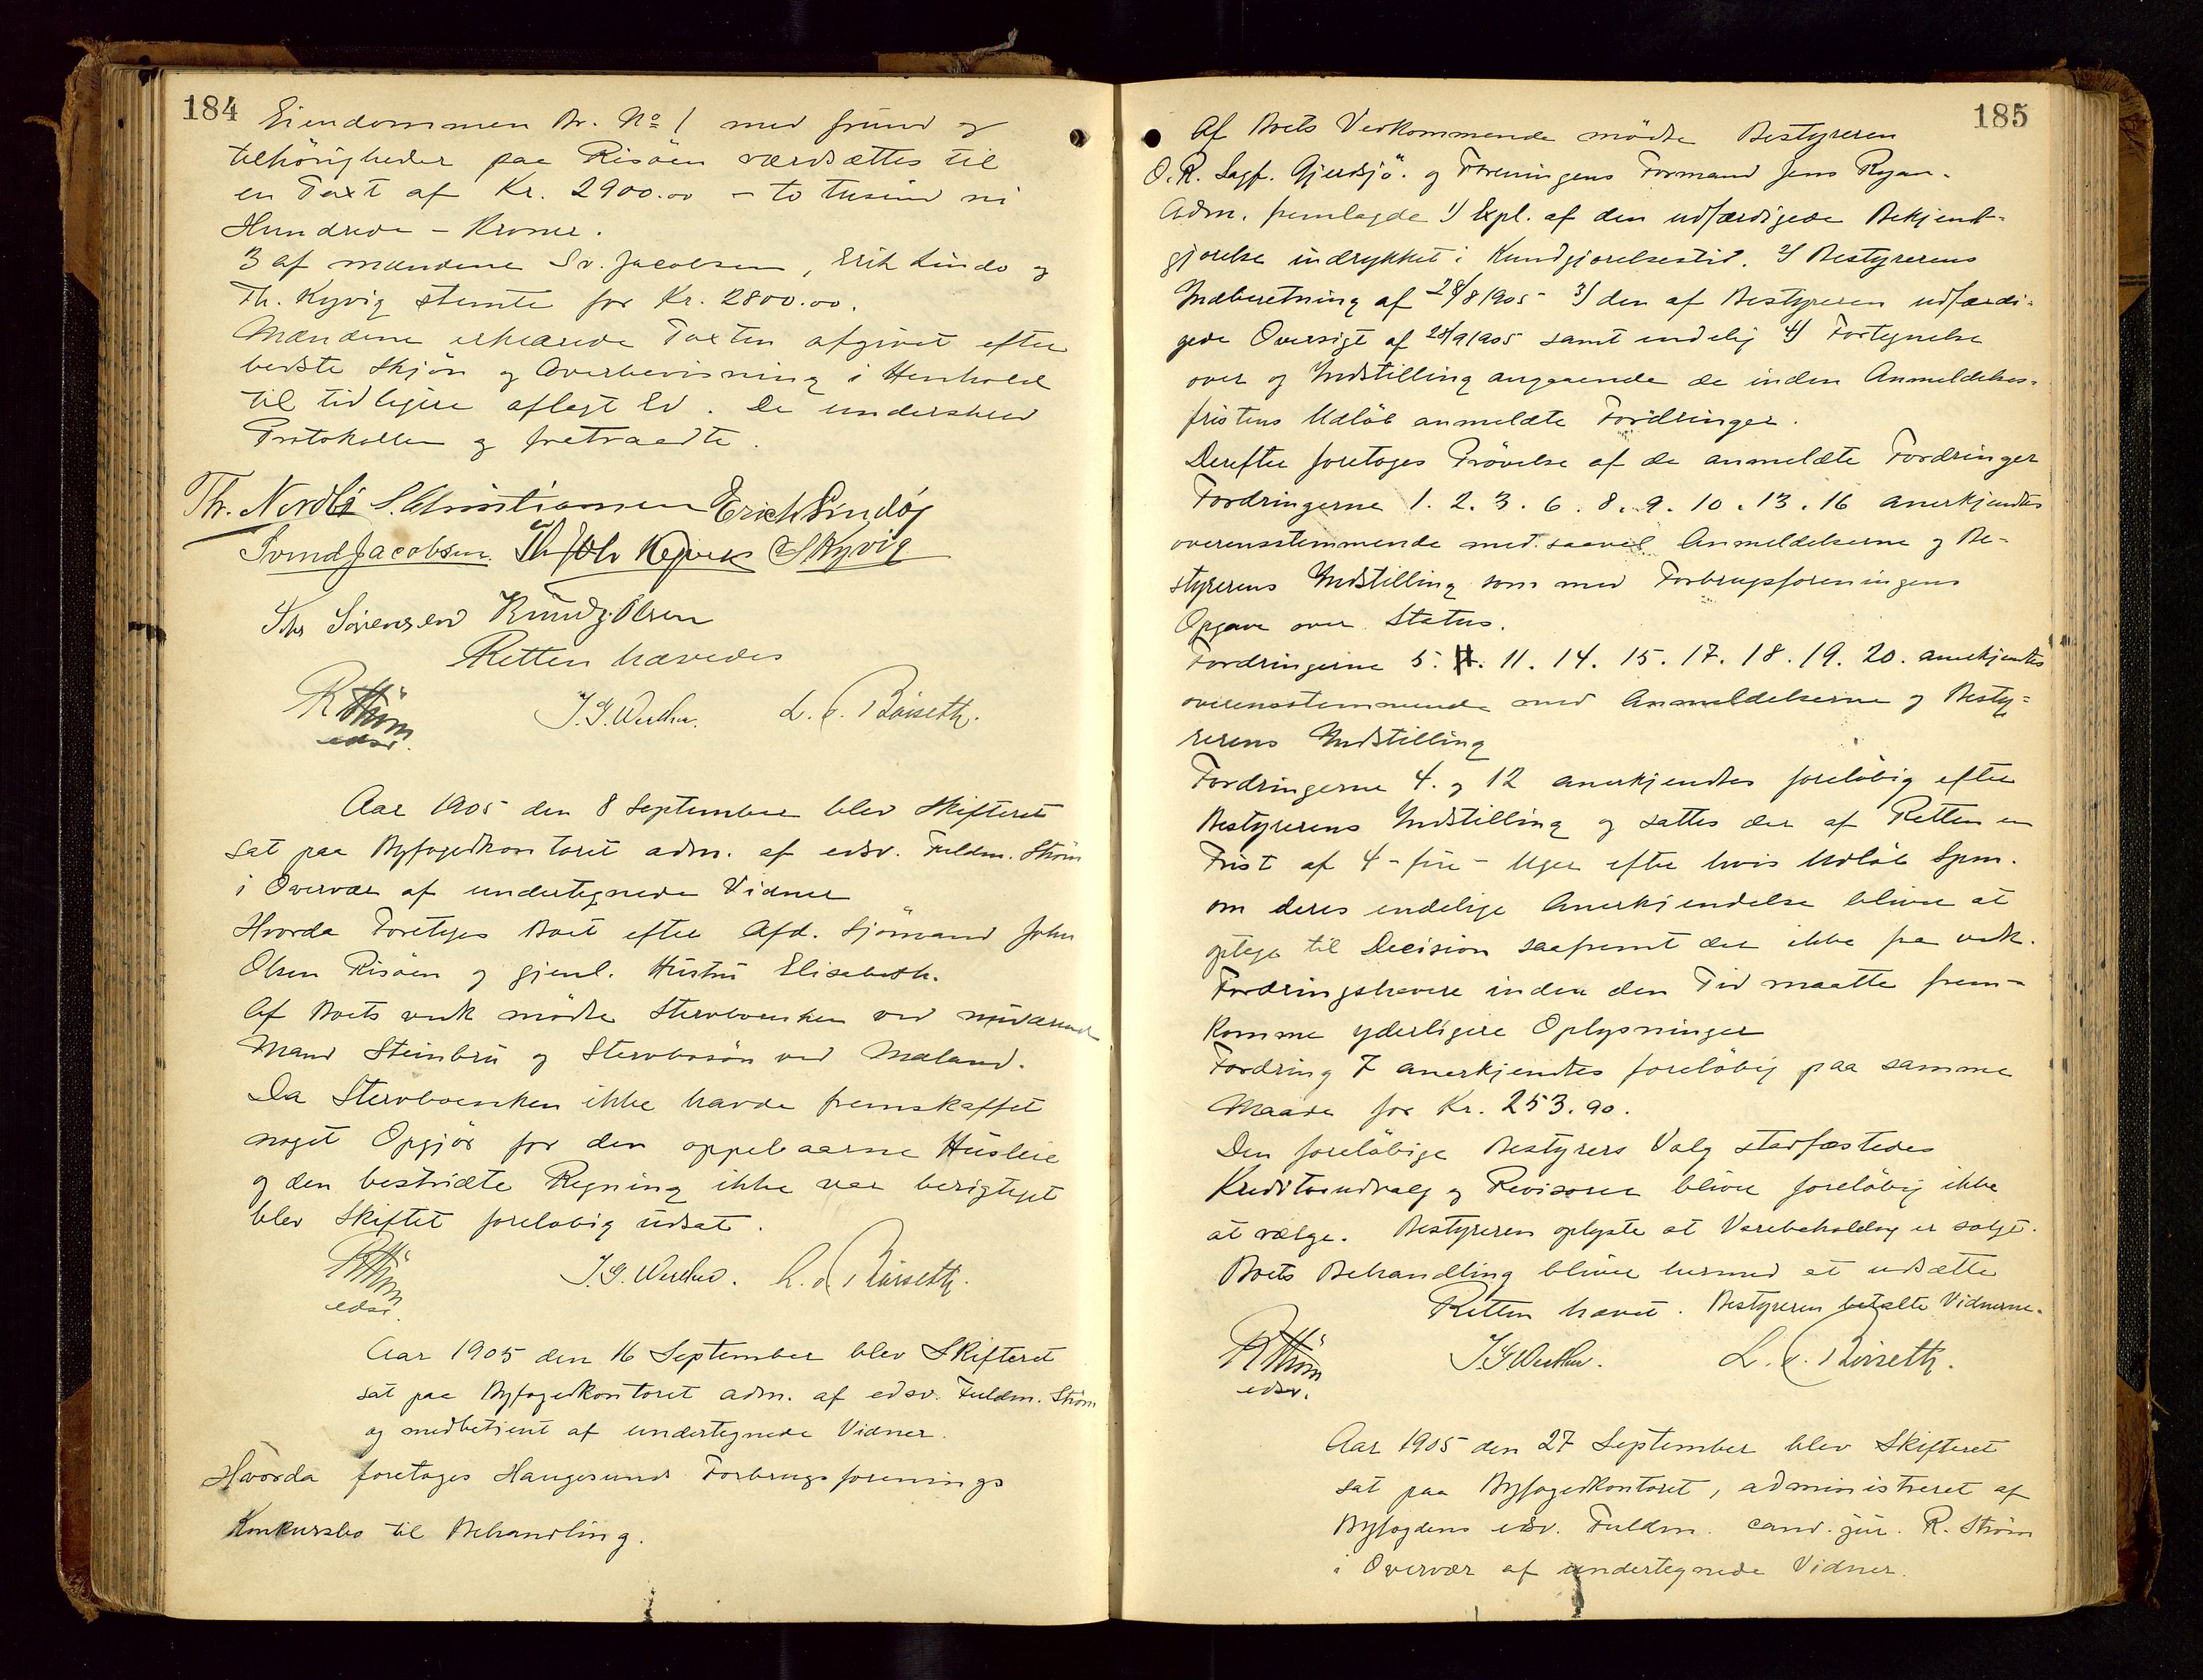 184
Eiendommen Br. No 1 med grund og
tilhörigheder paa Risöen værdsættes til
en Taxt af Kr. 2900.00 - to tusind ni
Hundrede - Kroner.
3 af mændene Sv. Jacobsen, Erik Lindö og
Th. Kyvig stemte for Kr. 2800.00.
Mændene erklærede Taxten afgivet efter
bedste Skjön og Overbevisning i Henhold
til tidligere aflagt Ed. De underskrev
Protokollen og fratraadte.
Th. Nordbö S. Christiansen Erich Lindöy
Svend Jacobsen. Kyvig
Sörensen Knud J. Olsen
Retten hævedes
R Ström
edsv.
J. G. Werther.
L. C. Röiseth.
Aar 1905 den 8 September blev Skifteret
sat paa Byfogedkontoret adm. af edsv. Fuldm. Ström
i Overvær af undertegnede Vidner
Hvorda Foretoges Boet efter Afd. Sjömand John
Olsen Risöen og gjenl. Hustru Elisabeth.
Af Boets vedk mödte Stervboenken ved nuværende
Mand Steinbru og Stervbosön ved Mæland.
Da Stervboenken ikke havde fremskaffet
noget Opgjör for den oppebaarne Husleie
og den bestridte Regning ikke var berigtiget
blev Skiftet foreløbig udsat.
R Ström
edsv.
J. G. Werther.
L. C. Röiseth.
Aar 1905 den 16 September blev Skifteret
sat paa Byfogedkontoret adm. af edsv. Fuldm. Ström
og medbetjent af undertegnede Vidner.
Hvorda foretoges Haugesunds Forbrugsforenings
Konkursbo til Behandling.
185
Af Boets Vedkommende mödte Bestyreren
O. R. Sagf. Gjerdsjö. og Foreningens Formand Jens Ryan.
Adm. fremlagde 1) Expl. af den udfærdigede Bekjendt-
gjørelse indrykket i Kundgjørelsestid. 2) Bestyrerens
Indberetning af 28/8 1905 - 3) den af Bestyreren udfærdi-
gede Oversigt af 28/9 1905 samt endelig 4) Fortegnelse
over og Indstilling angaaende de inden Anmeldelses-
fristens Udlöb anmeldte Fordringer.
Derefter foretoges Prövelse af de anmeldte Fordringer
Fordringerne 1. 2. 3. 6. 8. 9. 10. 13. 16 anerkjendtes
overensstemmende med saavel Anmeldelserne og Be-
styrerens Indstilling som med Forbrugsforeningens
Opgave over Status.
Fordringerne 5. 11. 14. 15. 17. 18. 19. 20. anerkjendtes
overensstemmende med Anmeldelserne og Besty-
rerens Indstilling
Fordringerne 4. og 12 anerkjendtes foreløbig efter
Bestyrerens Indstilling og sattes der af Retten en
Frist af 4 - fire - Uger efter hvis Udlöb Spm.
om deres endelige Anerkjendelse bliver at
optage til Decision saafremt der ikke fra vedk.
Fordringshavere inden den Tid maatte frem-
komme yderligere Oplysninger
Fordring 7 anerkjendtes foreløbig paa samme
Maade for Kr. 253.90.
Den foreløbige Bestyrers Valg stadfæstedes
Kreditorudvalg og Revisorer bliver foreløbig ikke
at vælge. Bestyreren oplyste at Varebeholdng er solgt.
Boets Behandling bliver hermed at udsætte
Retten hævet. Bestyreren betalte Vidnerne.
R Ström
edsv.
J G Werther.
L. C. Röiseth.
Aar 1905 den 27 September blev Skifteret
sat paa Byfogedkontoret, administreret af
Byfogdens edsv. Fuldm. cand. jur. R. Ström
i Overvær af undertegnede Vidner.